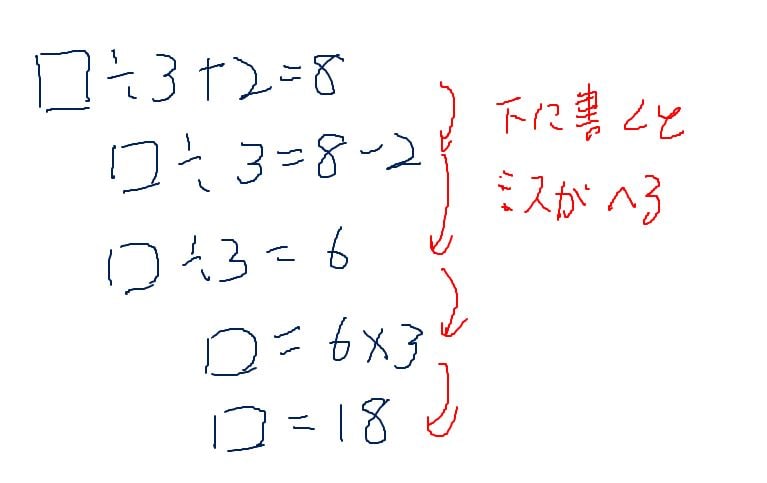 □÷3+2=8
□÷3=8-2
□÷3=6
□=6×3
□=18
下に書くと
ミスがへる